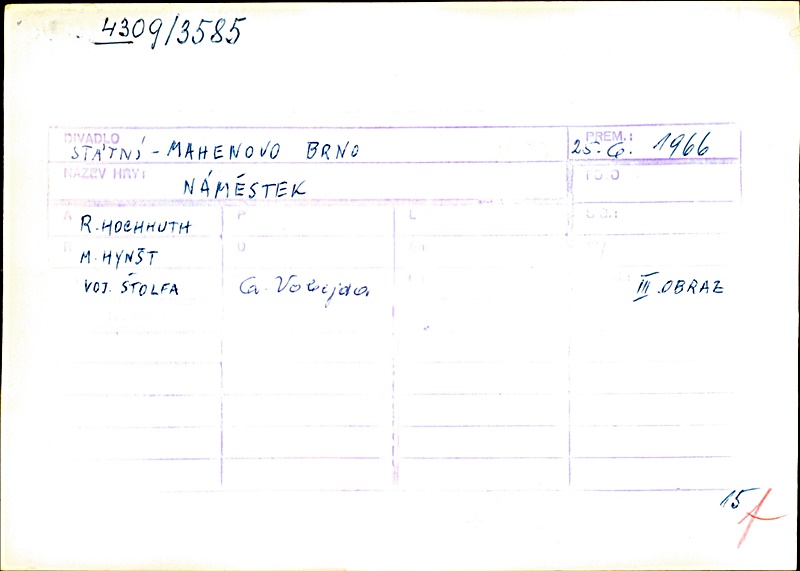 4309/3585
DIVADLO PREM.:
STÁTNÍ - MAHENOVO BRNO 25. 6. 1966
NÁZEV HRY: FOTO
NÁMĚSTEK
A P L
R. HOCHHUTH
R O
M. HYNŠT
VOJ. ŠTOLFA III. OBRAZ
15